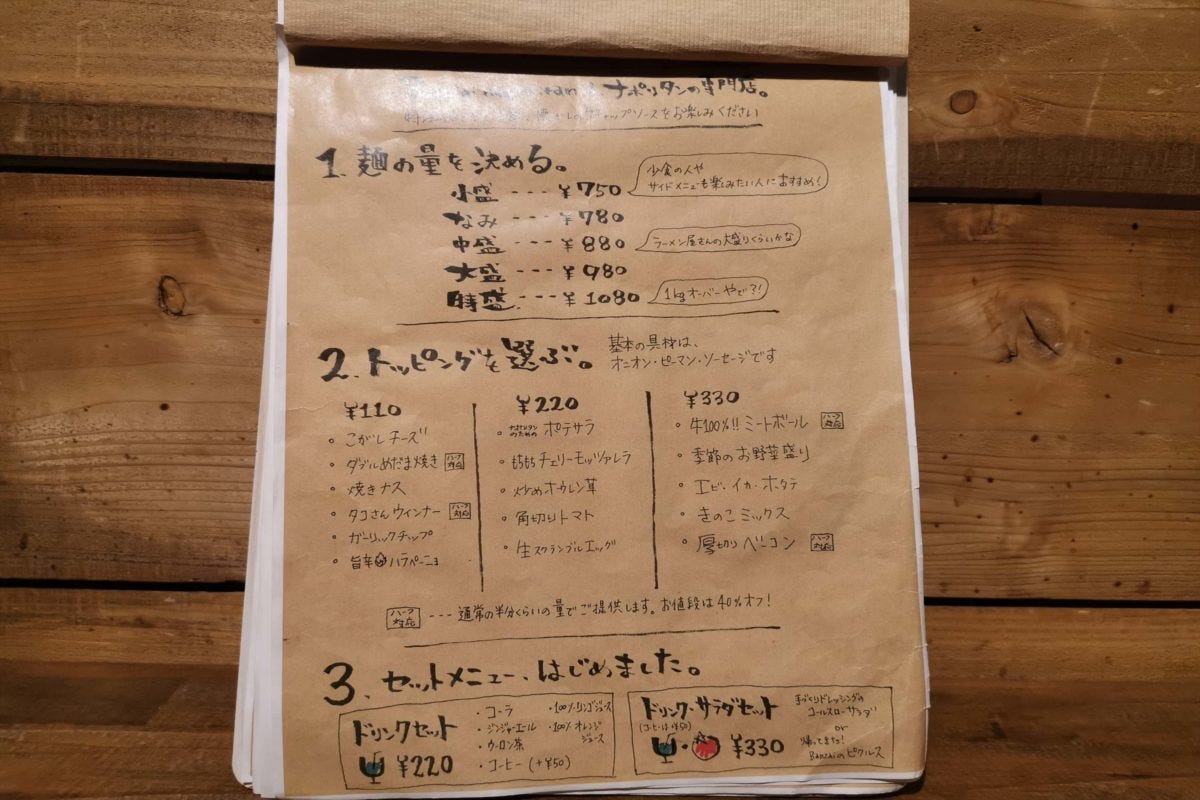 ナポリタンの専門店。
ソースをお楽しみください
1. 麺の量を決める。
小盛 --- ¥750
少食の人や
サイドメニューも楽しみたい人におすすめ!
なみ --- ¥780
中盛 --- ¥880
ラーメン屋さんの大盛りくらいかな
大盛 --- ¥980
時盛 --- ¥1080
1kgオーバーやで?!
2. トッピングを選ぶ。
基本の具材は、
オニオン・ピーマン・ソーセージです
¥110
・こがしチーズ
・ダブルめだま焼き ハーフ対応
・焼きナス
・タコさんウィンナー ハーフ対応
・ガーリックチップ
・旨辛 ハラペーニョ
¥220
・ナポリタンのための ポテサラ
・もちもちチェリーモッツァレラ
・炒めホウレン草
・角切りトマト
・生スクランブルエッグ
¥330
・牛100%!! ミートボール ハーフ対応
・季節のお野菜盛り
・エビ・イカ・ホタテ
・きのこミックス
・厚切りベーコン ハーフ対応
ハーフ対応 --- 通常の半分くらいの量でご提供します。お値段は40%オフ!
3. セットメニュー、はじめました。
ドリンクセット
¥220
・コーラ
・ジンジャーエール
・ウーロン茶
・コーヒー (+¥50)
・100%リンゴジュース
・100%オレンジ
ジュース
ドリンク・サラダセット
(コーヒーは+¥50)
¥330
手づくりドレッシングの
コールスローサラダ
or
帰ってきた!
Banzaiのピクルス